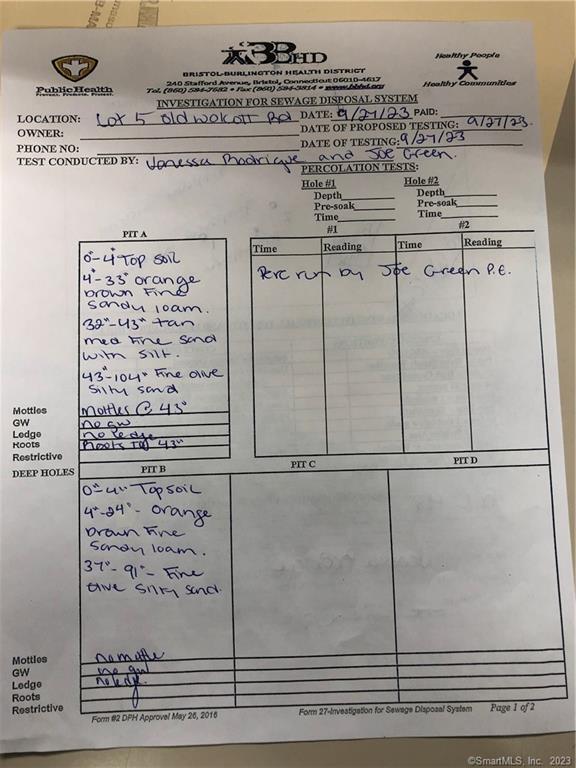 BBHD
Healthy People
Healthy Communities
PublicHealth
Prevent. Promote. Protect.
BRISTOL-BURLINGTON HEALTH DISTRICT
240 Stafford Avenue, Bristol, Connecticut 06010-4617
Tel. (860) 584-7682 • Fax (860) 584-3814 • www.bbhd.org
INVESTIGATION FOR SEWAGE DISPOSAL SYSTEM
LOCATION: Lot 5 Old Wolcott Rd DATE: 9/27/23 PAID:
OWNER: DATE OF PROPOSED TESTING: 9/27/23
PHONE NO: DATE OF TESTING: 9/27/23
TEST CONDUCTED BY: Vanessa Rodrigue and Joe Green.
PERCOLATION TESTS:
Hole #1 Hole #2
Depth Depth
Pre-soak Pre-soak
Time Time
#1 #2
Time Reading Time Reading
Perc run by Joe Green P.E.
PIT A
0"-4" Top soil
4"-33" orange
brown Fine
Sandy loam.
32"-43" tan
med Fine Sand
with silt.
43"-104" Fine olive
Silty sand
Mottles Mottles @ 43"
GW no gw
Ledge no ledge
Roots Roots to 43"
Restrictive
DEEP HOLES PIT B PIT C PIT D
0"-4" Topsoil
4"-24" - Orange
brown Fine
Sandy loam.
37"-91" - Fine
olive Silty sand.
Mottles no mottle
GW no gw
Ledge no ledge.
Roots
Restrictive
Form #2 DPH Approval May 26, 2016 Form 27-Investigation for Sewage Disposal System Page 1 of 2
©SmartMLS, Inc. 2023